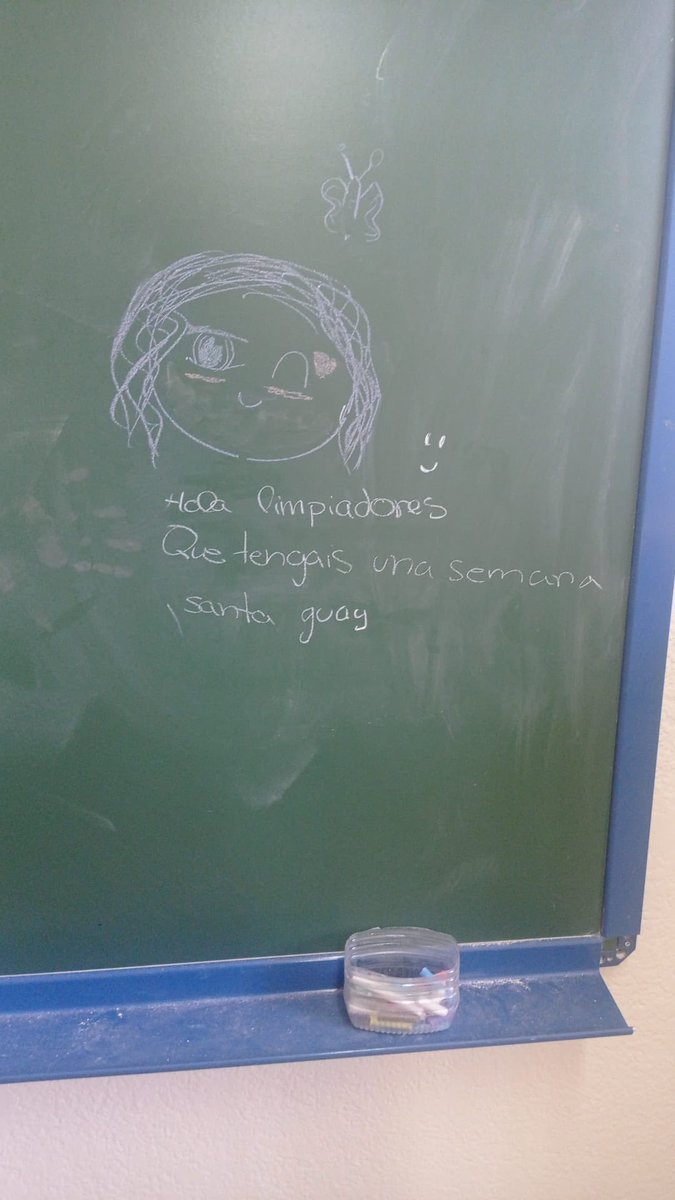 Hola limpiadores
Que tengais una semana
santa guay